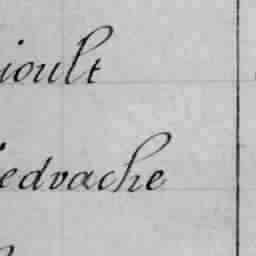 ioult
edvache